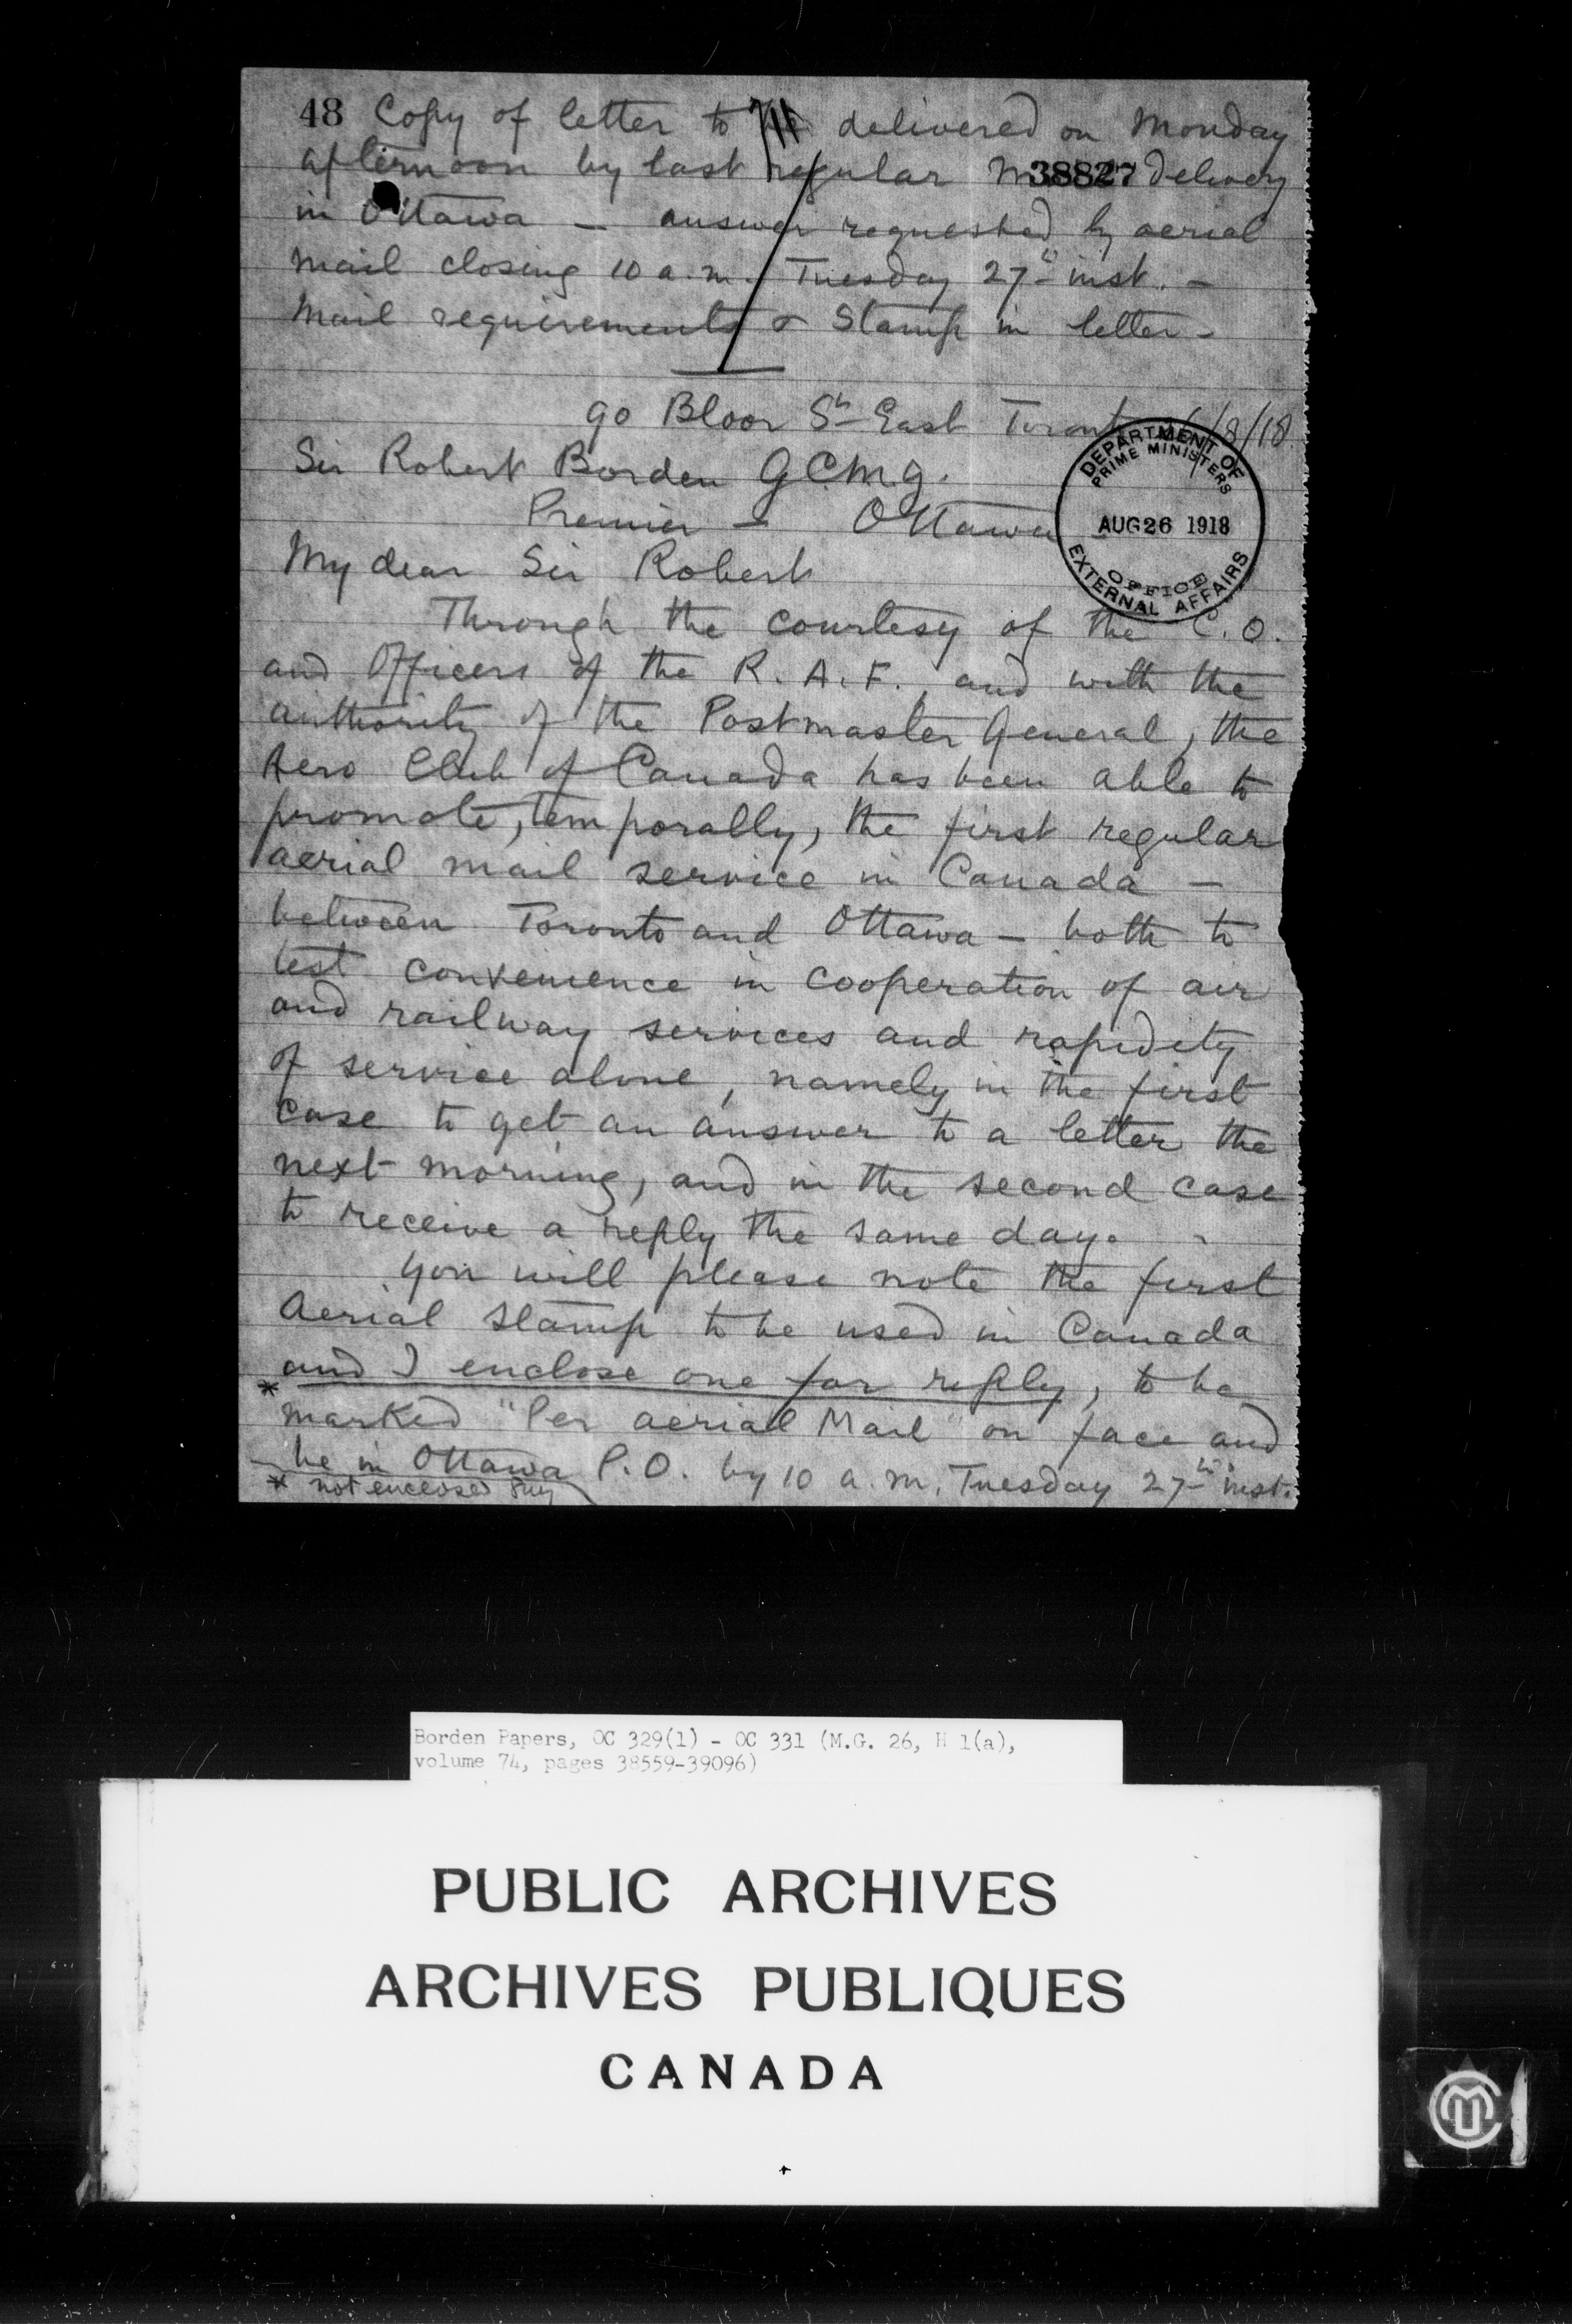 48 Copy of letter to be delivered on Monday
afternoon by last regular 38827 delivery
in Ottawa – answer requested by aerial
mail closing 10 a.m. Tuesday 27th inst. –
Mail requirements & Stamp in letter –
90 Bloor St East Toronto /8/18.
Sir Robert Borden G.C.M.G.
Premier – Ottawa
DEPARTMENT OF
PRIME MINISTERS
AUG 26 1918
OFFICE
EXTERNAL AFFAIRS
My dear Sir Robert
Through the courtesy of the C.O.
and Officers of the R.A.F., and with the
authority of the Postmaster General, the
Aero Club of Canada has been able to
promote, temporally, the first regular
aerial mail service in Canada –
between Toronto and Ottawa – both to
test convenience in cooperation of air
and railway services and rapidity
of service alone, namely in the first
case to get an answer to a letter the
next morning, and in the second case
to receive a reply the same day.
You will please note the first
Aerial Stamp to be used in Canada
and I enclose one for reply, to be
* marked "Per aerial Mail" on face and
be in Ottawa P.O. by 10 a.m. Tuesday 27th inst.
* not enclosed
Borden Papers, OC 329(1) - OC 331 (M.G. 26, H 1(a),
volume 74, pages 38559-39096)
PUBLIC ARCHIVES
ARCHIVES PUBLIQUES
CANADA